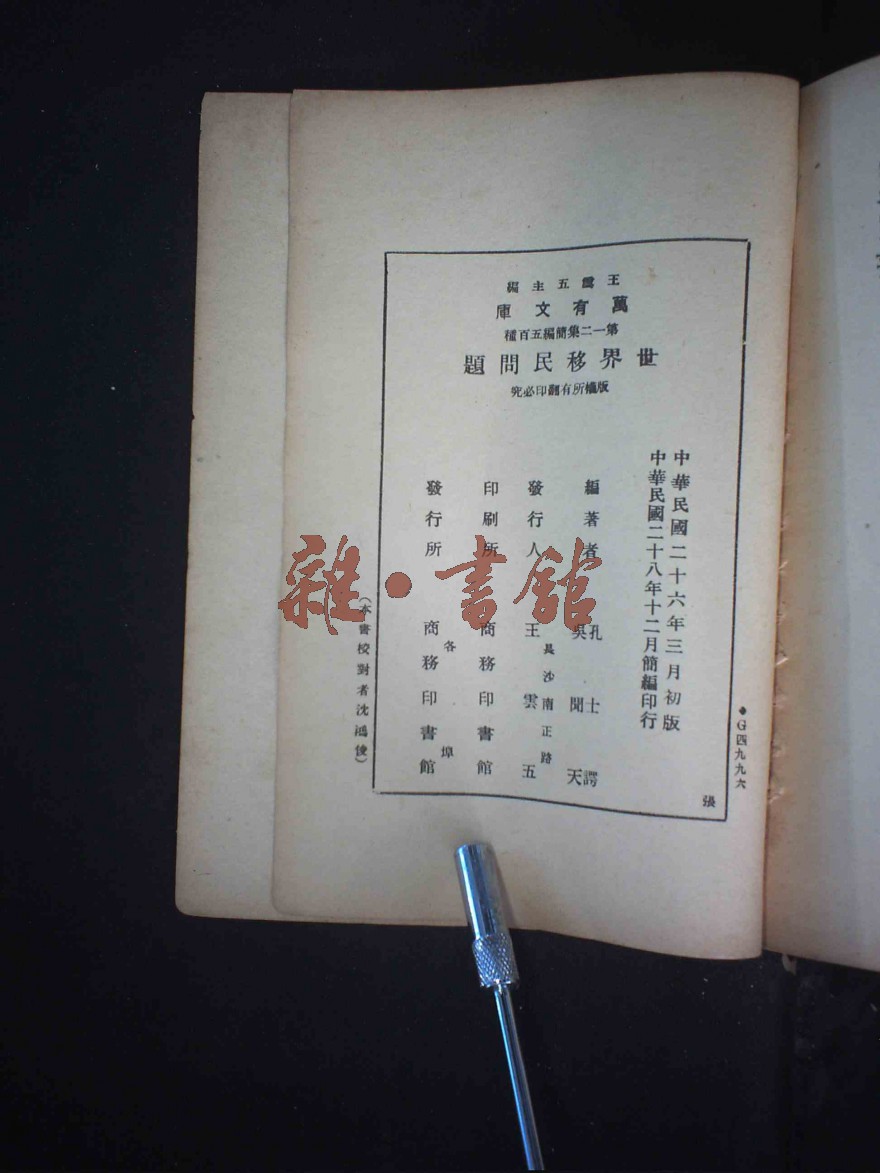 王雲五主編
萬有文庫
第一二集簡編五百種
世界移民問題
版權所有翻印必究
中華民國二十六年三月初版
中華民國二十八年十二月簡編印行
編著者 孔士諤
吳聞天
發行人 王雲五
長沙南正路
印刷所 商務印書館
發行所 商務印書館
各埠
(本書校對者沈
●G四九九六
張
雜·書館